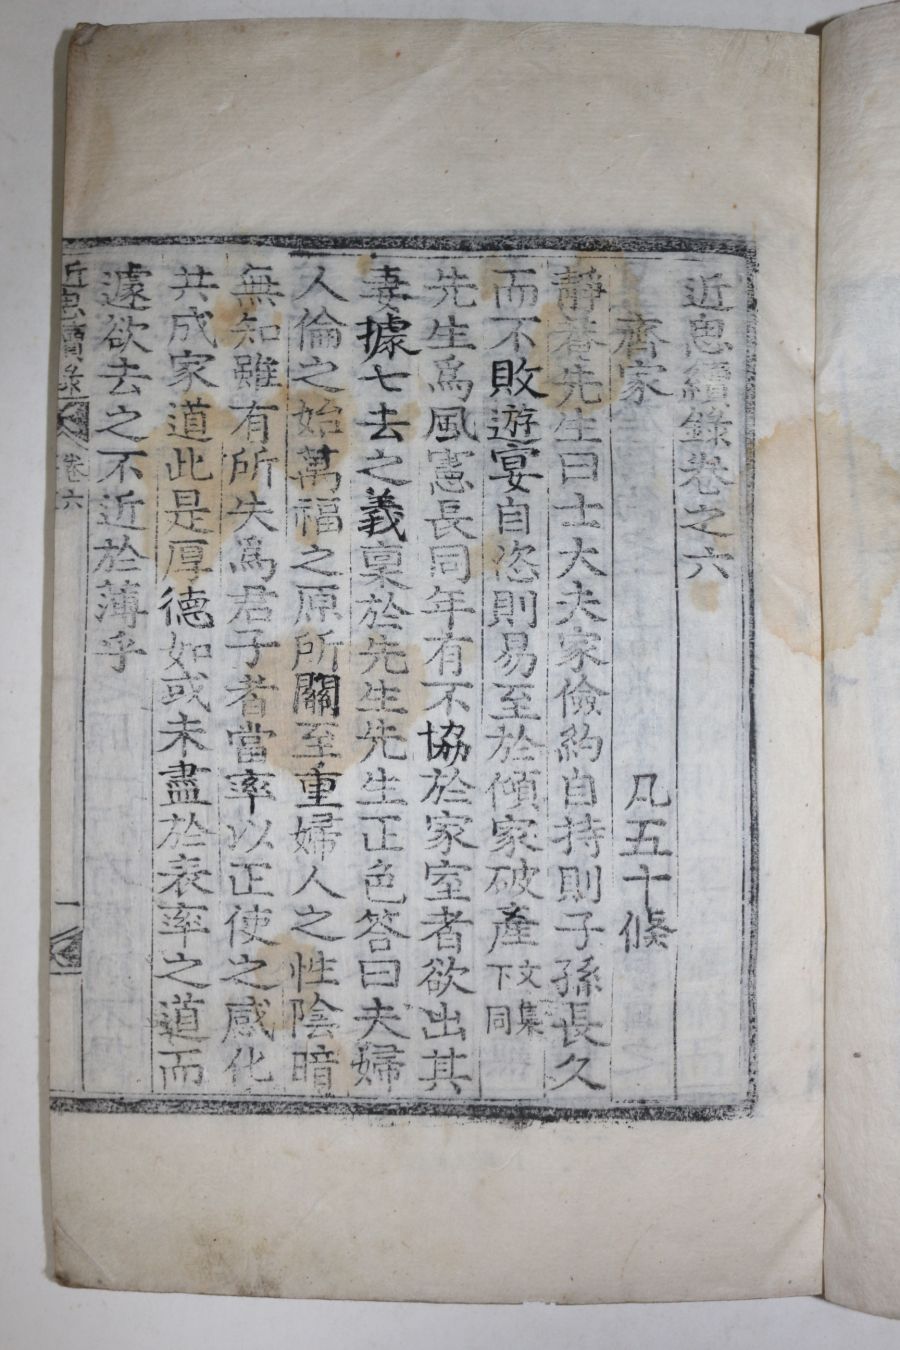 近思續錄卷之六
齊家 凡五十條
靜菴先生曰士大夫家儉約自持則子孫長久
而不敗遊宴自恣則易至於傾家破產文集下同
先生爲風憲長同年有不協於家室者欲出其
妻據七去之義稟於先生先生正色答曰夫婦
人倫之始萬福之原所關至重婦人之性陰暗
無知雖有所失爲君子者當率以正使之感化
共成家道此是厚德如或未盡於表率之道而
遽欲去之不近於薄乎
近思續錄 卷六 一